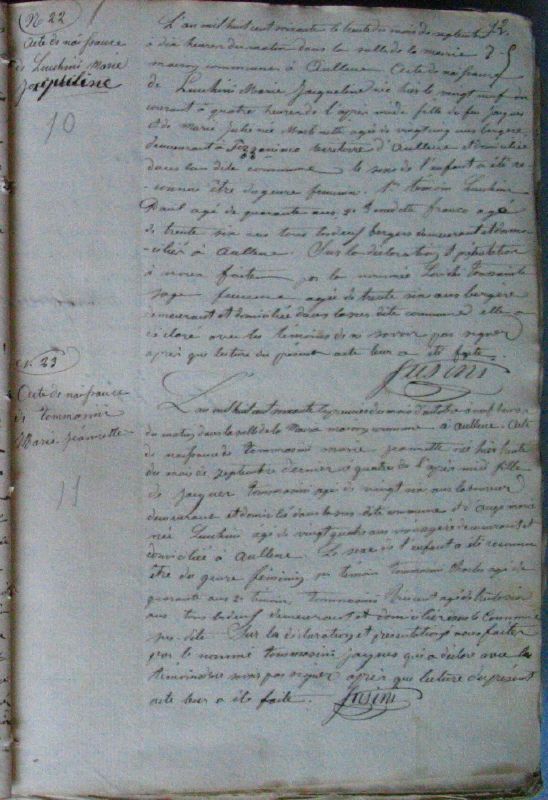 N° 22
Acte de naissance
de Lucchini Marie
Jacquline
10
L'an mil huit cent soixante le trente du mois de septembre
à dix heures du matin dans la salle de la mairie
maison commune à Aullene Acte de naissance
de Lucchini Marie Jacqueline née hier le vingt neuf du
courant à quatre heures de l'après midi fille de feu Jacques
et de Marie Julie née agée de vingt cinq ans bergère
demeurant à territoire d'Aullene et domiciliée
dans la dite commune le sexe de l'enfant a été re-
-connu être du genre feminin. 1er témoin Lucchini
Paul agé de quarante ans, 2e Benedetti franco agé
de trente six ans tous les deux bergers demeurant et domi-
-cilié à Aullene. Sur la déclaration et présentation
à nous faite par la nommée Toussainte
sage femme agée de trente six ans bergère
demeurant et domiciliée dans la sus dite commune elle a
déclaré avec les témoins de ne savoir pas signer
après que lecture du présent acte leur a été faite.
Susini
N. 23
Acte de naissance
de Tommasini
Marie Jeannette
11
L'an mil huit cent soixante le premier du mois d'octobre à neuf heures
du matin dans la salle de la Mairie maison commune à Aullene. Acte
de naissance de Tommasini Marie Jeannette née hier trente
du mois de septembre dernier à quatre de l'après midi fille
de Jacques Tommasini agé de vingt six ans laboureur
demeurant et domicilié dans la sus dite commune et d'Ange Marie
née Lucchini âgé de vingt quatre ans ménagère demeurant et
domiciliée à Aullene. Le sexe de l'enfant a été reconnu
être du genre féminin, 1er témoin Tommasini Charles agé de
quarante ans 2e témoin, Tommasini Vincent agé de trente six
ans tous les deux demeurant et domiciliés dans la Commune
sus-dite. Sur la déclaration et présentation à nous faite
par le nommé Tommasini Jacques qui a déclaré avec les
témoins de ne savoir pas signer après que lecture du présent
acte leur a été faite. Susini